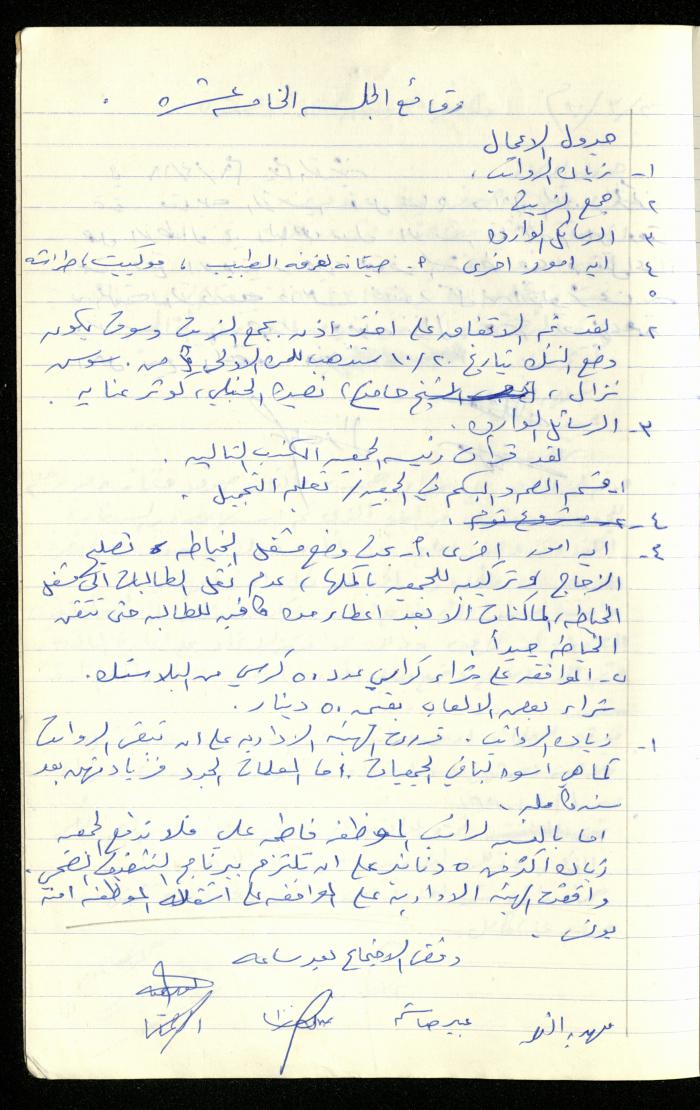 وقائع الجلسه الخامسه عشره
جدول الاعمال
١- زياده الرواتب.
٢. جمع الزيت
٣. الرسائل الوارده
٤. ايه امور اخرى أ- صيانه لغرفه الطبيب ، موكيت،
٥
٢. لقد تم الاتفاق على اخذ اذن بجمع الزيت وسوف يكون
وضع التنك بتاريخ ١٠/٢٠ ستذهب للمره الاولى من. سوسن
نزال ، نصيره الحنبلي، كوثر عنايه.
٣- الرسائل الوارده.
لقد قرأت رئيسه الجمعيه الكتب التاليه.
١- قسم الصم والبكم في الجمعيه / تعليم التجميل.
٤-
٤- ايه امور اخرى. أ- بحث وضع مشغل الخياطه تصليح
الزجاج وتركيبه للجمعيه بأكملها، عدم نقل الطالبات الى مشغل
الخياطه، الماكنات الا بعد اعطاء مده كافيه للطالبه حتى تتقن
الخياطه جيداً.
ب- الموافقه على شراء كراسي عدد ٥٠ كرسي من البلاستك.
شراء بعض الالعاب بقيمه ٥٠ دينار.
١- زياده الرواتب. قررت الهيئه الاداريه على ان تبقى الرواتب
كما هي اسوه لباقي الجمعيات. اما المعلمات الجدد فزيادتهن بعد
سنه كامله.
اما بالنسبه لراتب الموظفه فاطمه علي فلا تدفع الجمعيه
زياده اكثر من ٥ دنانير على ان تلتزم ببرنامج التثقيف الصحي.
وافقت الهيئه الاداريه على الموافقه على استقاله الموظفه امنه
يونس.
وفض الاجتماع بعد ساعه
عبير